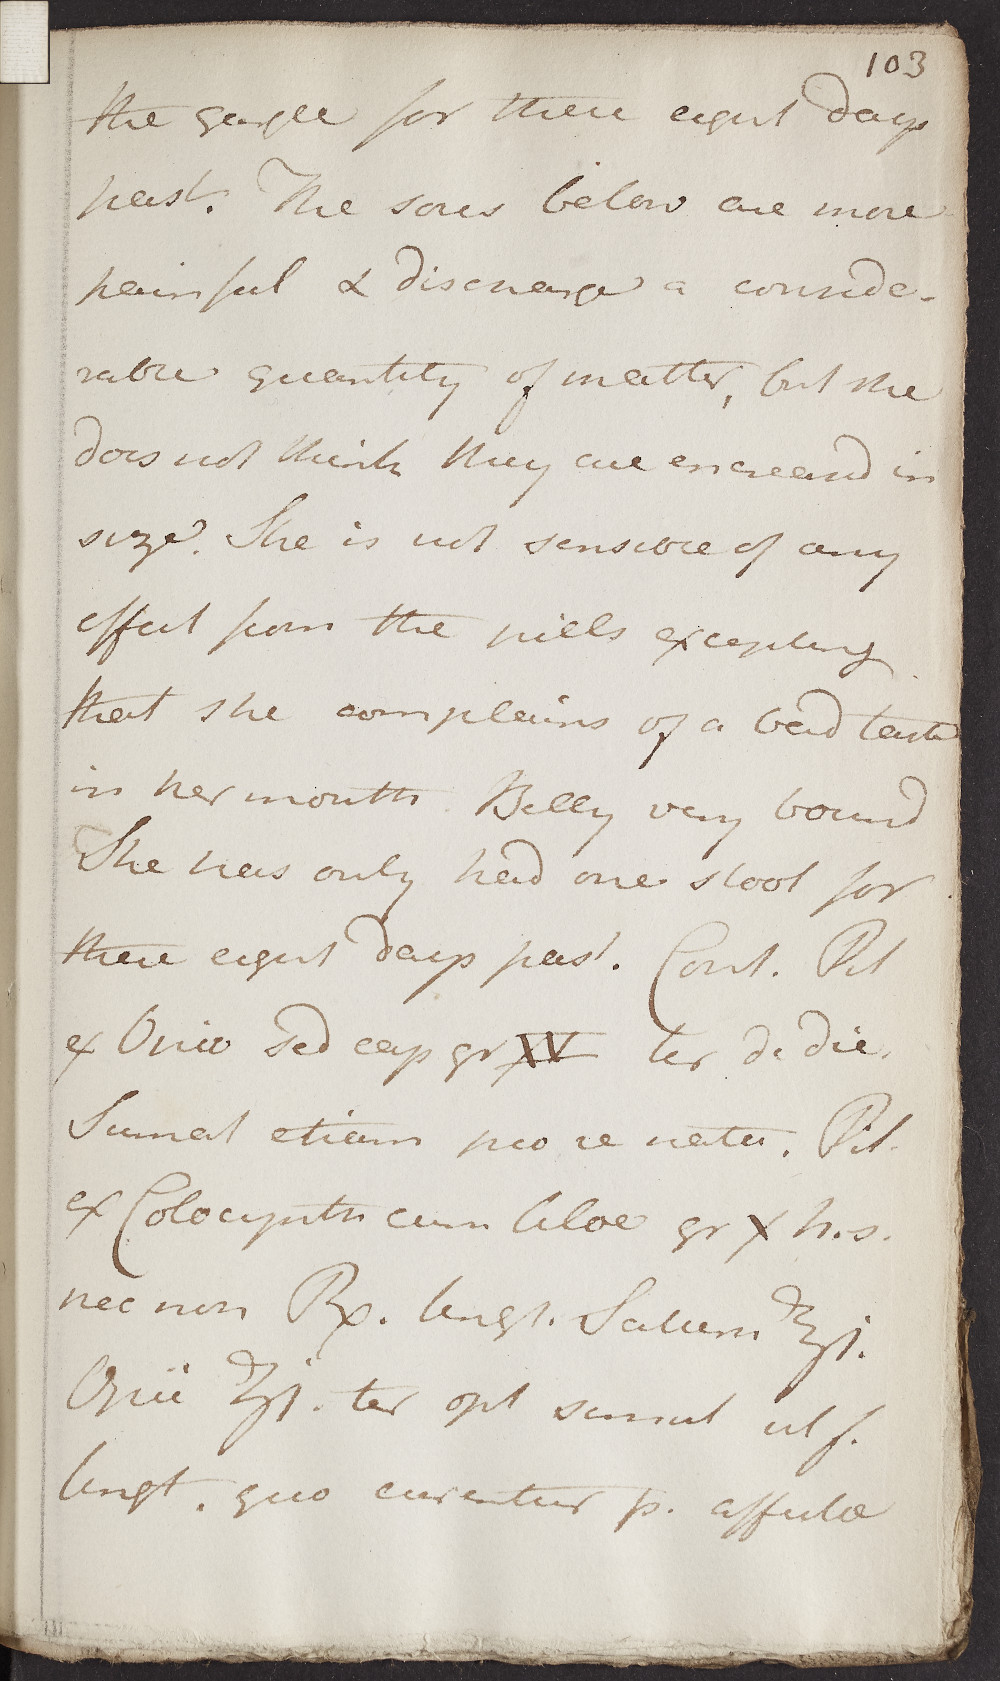 103
the gargle for these eight days
past. The sores below are more
painful & discharge a conside-
rable quantity of matter, but she
does not think they are encreased in
size. She is not sensible of any
effect from the pills excepting
that she complains of a bad taste
in her mouth. Belly very bound
She has only had one stool for
these eight days past. Cont. Pil
ex Opio sed cap gr XV ter de die.
Sumat etiam pro re nata. Pil.
ex Colocynth cum Aloe gr X h.s.
nec non Rx. Ungt. Saturn ℥j.
Opii ʒj. ter opt simul ut f.
Ungt. quo curentur p. affectæ